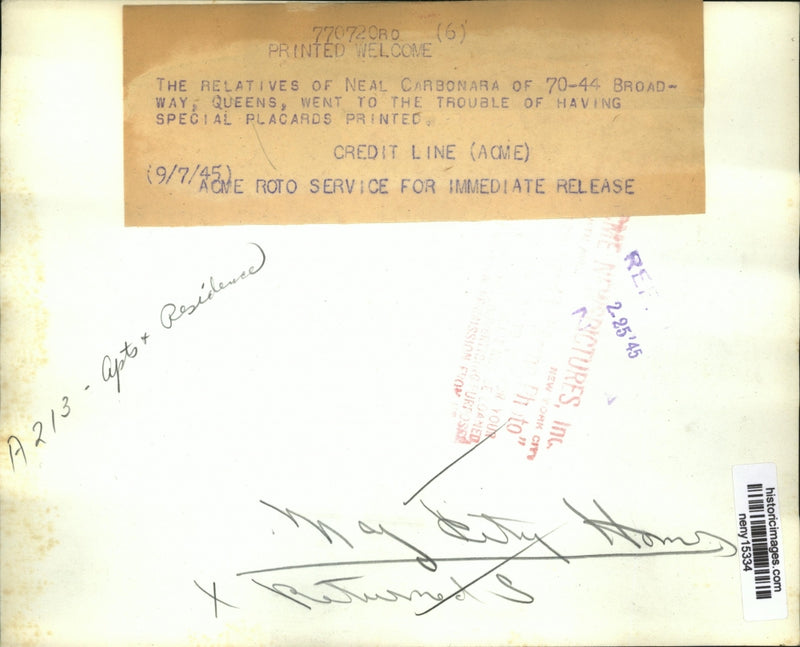 770720RD (6)
PRINTED WELCOME
THE RELATIVES OF NEAL CARBONARA OF 70-44 BROAD-
WAY, QUEENS, WENT TO THE TROUBLE OF HAVING
SPECIAL PLACARDS PRINTED.
CREDIT LINE (ACME)
(9/7/45)
ACME ROTO SERVICE FOR IMMEDIATE RELEASE
A213 - Apts + Residence
REF
2-25'45
PICTURES, Inc.
NEW YORK CITY
YOUR
LOANED
PERMISSION FROM
City Homes
X Returned S
historicimages.com
neny15334